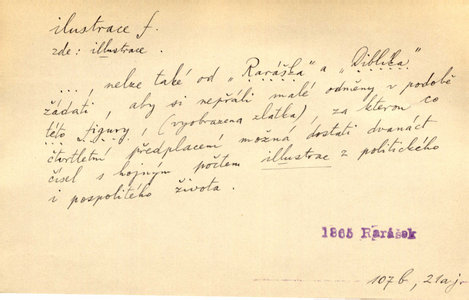 ilustrace f.
zde: illustrace.
..., nelze také od „Raráška" a „Diblíka"
žádati, aby si nepřáli malé odměny v podobě
této figury, (vyobrazena zlatka), za kterou co
čtvrtletní předplacení možná dostati dvanáct
čísel s hojným počtem illustrac z politického
i pospolitého života.
1865 Rarášek
107b, 21aj.